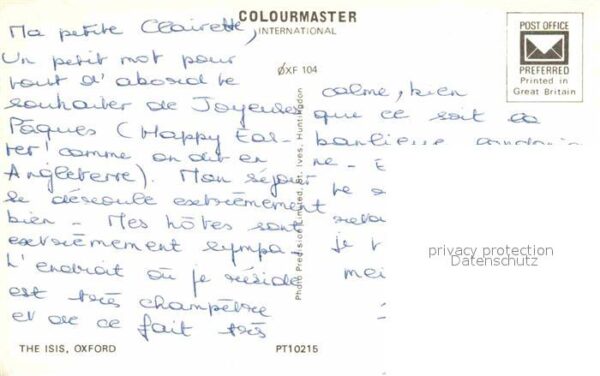 COLOURMASTER
INTERNATIONAL
ØXF 104
POST OFFICE
PREFERRED
Printed in
Great Britain
Ma petite Clairette,
Un petit mot pour
tout d'abord te
souhaiter de Joyeuses
Pâques (Happy Eas-
ter' comme on dit en
Angleterre). Mon séjour
se déroule extrêmement
bien - Mes hôtes sont
extrêmement sympa -
L'endroit où je réside
est très champêtre
et de ce fait très
calme, bien
que ce soit la
banlieue
ne -
te
je
mei
Photo Precision Limited, St. Ives, Huntingdon
privacy protection
Datenschutz
THE ISIS, OXFORD
PT10215